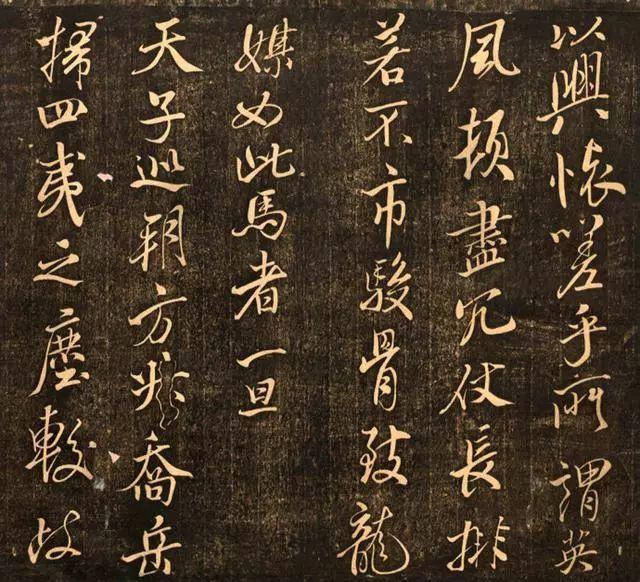 以興懷嗟乎所謂英
風頓盡冗仗長排
若不市駿骨致龍
媒如此馬者一旦
天子巡朔方升喬岳
掃四夷之塵較岐